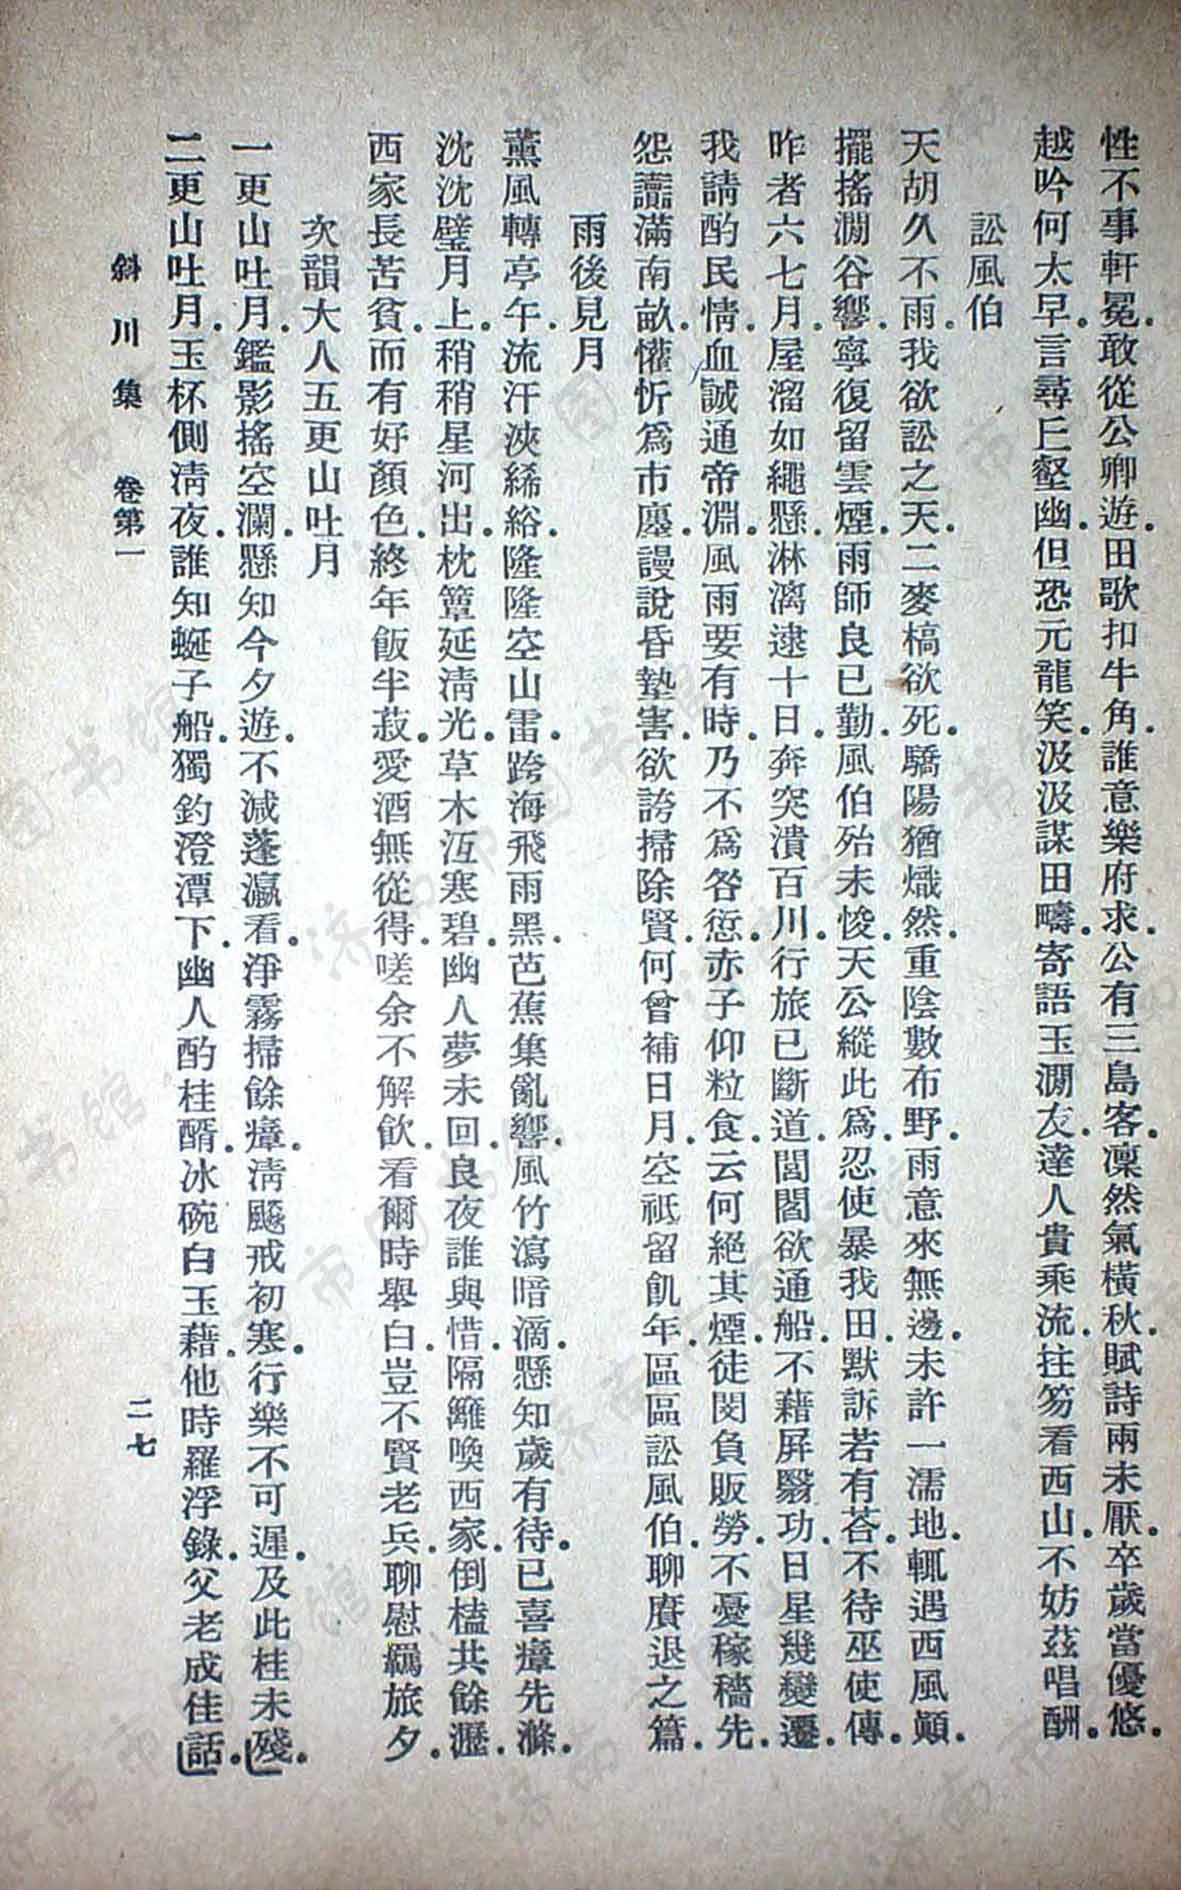 性不事軒冕。敢從公卿遊。田歌扣牛角。誰意樂府求。公有三島客。凜然氣橫秋。賦詩兩未厭。卒歲當優悠。
越吟何太早。言尋丘壑幽。但恐元龍笑。汲汲謀田疇。寄語玉澗友。達人貴乘流。拄笏看西山。不妨茲唱酬。
訟風伯
天胡久不雨。我欲訟之天。二麥槁欲死。驕陽猶熾然。重陰數布野。雨意來無邊。未許一濡地。輒遇西風顚。
擺搖澗谷響。寧復留雲煙。雨師良已勤。風伯殆未悛。天公縱此爲。忍使暴我田。默訴若有荅。不待巫使傳。
昨者六七月。屋溜如繩懸。淋漓逮十日。奔突潰百川。行旅已斷道。閭閻欲通船。不藉屏翳功。日星幾變遷。
我請酌民情。血誠通帝淵。風雨要有時。乃不爲咎愆。赤子仰粒食。云何絕其煙。徒閔負販勞。不憂稼穡先。
怨讟滿南畝。懽忻爲市廛。謾說昏墊害。欲誇掃除賢。何曾補日月。空祇留飢年。區區訟風伯。聊賡退之篇。
雨後見月
薰風轉亭午。流汗浹絺綌。隆隆空山雷。跨海飛雨黑。芭蕉集亂響。風竹瀉暗滴。懸知歲有待。已喜瘴先滌。
沈沈璧月上。稍稍星河出。枕簟延淸光。草木沍寒碧。幽人夢未回。良夜誰與惜。隔籬喚西家。倒榼共餘瀝。
西家長苦貧。而有好顏色。終年飯半菽。愛酒無從得。嗟余不解飮。看爾時舉白。豈不賢老兵。聊慰羈旅夕。
次韻大人五更山吐月
一更山吐月。鑑影搖空瀾。懸知今夕遊。不減蓬瀛看。淨霧掃餘瘴。淸飈戒初寒。行樂不可遲。及此桂未殘。
二更山吐月。玉杯側淸夜。誰知蜒子船。獨釣澄潭下。幽人酌桂醑。冰碗白玉藉。他時羅浮錄。父老成佳話。
斜川集　卷第一　二七